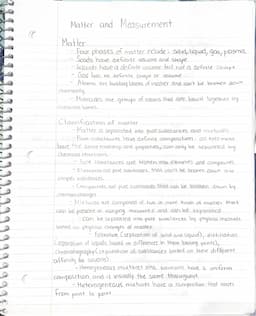 Matter and Measurement
Matter
Four phases of matter include: solid, liquid, gas, plasma
- Solids have definite volume and shape
- Liquids have a definite volume but not a definite shape
- Gas has no definite shape or volume
- Atoms are building blocks of matter and can't be broken down
chemically
- Molecules are groups of atoms that are bound together by
bonds
Classification of matter
- Matter is separated into pure substances and mixtures
- Pure substances have defined composition
have the same makeup and properties, can only be separated by
chemical reactions
- Pure substances are
elements and compounds
- Elements are pure substances that can't be broken down into
simpler substances
- Compounds are pure substances that can be broken down by
- Mixtures are composed of two or more kinds of matter that
can be present in varying amounts and can be separated
- Can be separated into pure substances by physical methods
based on physical changes of matter
- Filtration (separation of solid and liquid), distillation
(separation of liquids based on differences in their boiling points),
chromatography (separation of substances based on their different
affinity to
- Homogeneous mixtures have a uniform
composition and is visually the same throughout
- Heterogeneous mixtures have a composition that varies
from point to point